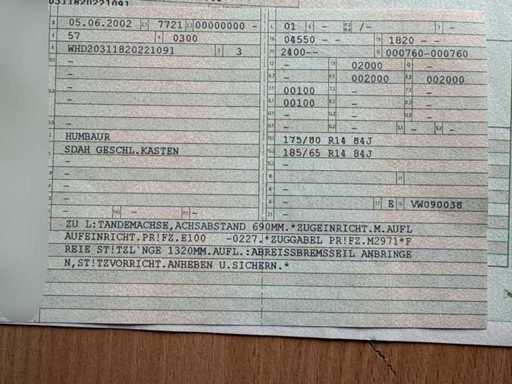 03118202210 91
05.06.2002 7721 00000000 -
57 0300
WHD20311820221091 3
HUMBAUR
SDAH GESCHL.KASTEN
01 - /-
04550 - - 1820 - -
2400-- 000760-000760
- 02000 -
- 002000 002000
00100 - -
00100 - -
175/80 R14 84J
185/65 R14 84J
E VW090038
ZU L:TANDEMACHSE,ACHSABSTAND 690MM.*ZUGEINRICHT.M.AUFL
AUFEINRICHT.PR!FZ.E100 -0227.*ZUGGABEL PR!FZ.M2971*F
REIE ST!TZL'NGE 1320MM.AUFL.:ABREISSBREMSSEIL ANBRINGE
N,ST!TZVORRICHT.ANHEBEN U.SICHERN.*